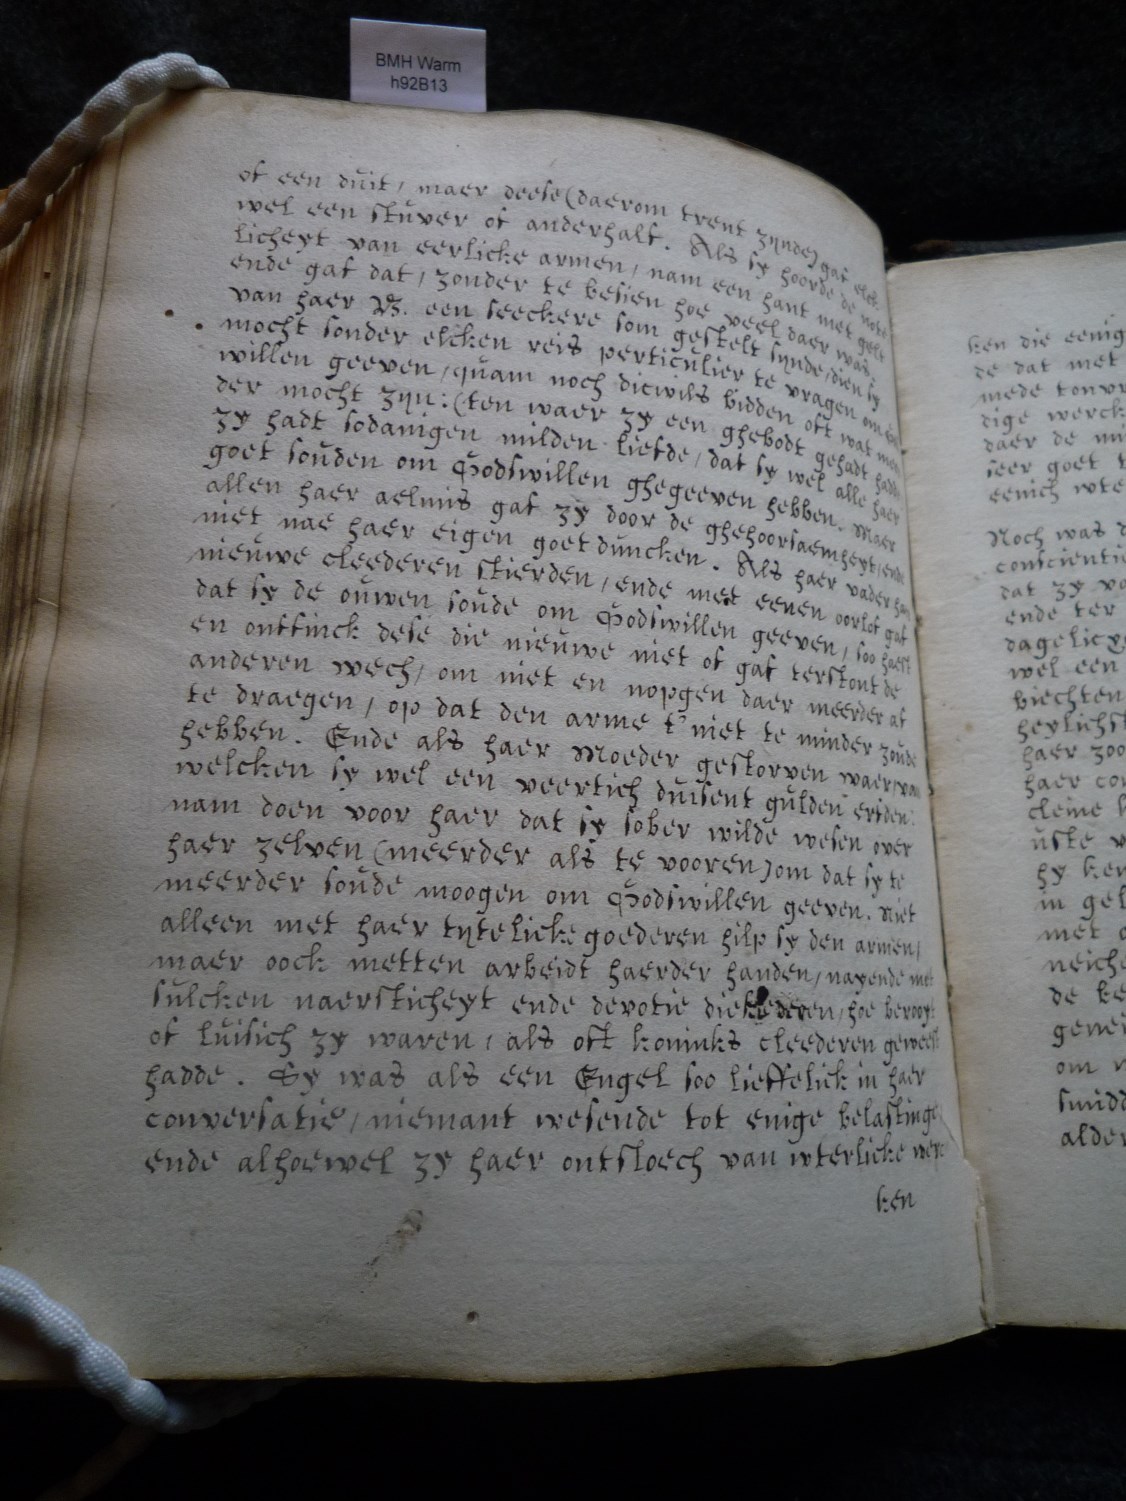 BMH Warm
h92B13
of een duit, maer deese (daerom trent zynde) gaf elck
wel een stuver of anderhalf. Als sy hoorde de note
licheyt van eerlicke armen, nam een hant met gelt
ende gaf dat, zonder te besien hoe veel daer was,
van haer een seeckere som gestelt synde, dien sy
mocht sonder elcken reis perticulier te vragen om
willen geeven, quam noch dicwils bidden oft wat meer
der mocht zyn: (ten waer zy een ghebodt gehadt hadde
zy hadt sodanigen milden liefde, dat sy wel alle haer
goet souden om Godswillen ghegeeven hebben. Maer
allen haer aelmis gaf zy door de ghehoorsaemheyt, ende
niet nae haer eigen goetduncken. Als haer vader haer
nieuwe cleederen stierden, ende met eenen oorlof gaf
dat sy de ouwen soude om Godswillen geeven, soo haest
en ontfinck dese die nieuwe niet of gaf terstont de
anderen wech, om niet en nopgen daer meerder af
te draegen, op dat den arme t' niet te minder zoude
hebben. Ende als haer Moeder gestorven waer, van
welcken sy wel een veertich duisent gulden erfden:
nam doen voor haer dat sy sober wilde wesen over
haer zelven (meerder als te vooren) om dat sy te
meerder soude moogen om Godswillen geeven. Niet
alleen met haer tytelicke goederen hilp sy den armen,
maer oock metten arbeidt haerder handen, nayende met
sulcken naersticheyt ende devotie die kederen, hoe berooyt
of luisich zy waren, als oft koninks cleederen geweest
hadde. Sy was als een Engel soo lieffelick in haer
conversatie, niemant wesende tot enige belastinge
ende alhoewel zy haer ontsloech van wterlicke wer
ken
ken die eenig
de dat met
mede
dige werck
daer de
seer goet
eenich wte
Noch was
conscienti
dat zy
ende ter
dagelicx
wel een
biechten
heylichst
haer zoo
haer con
cleine
uste
hy ken
in gel
met
neiche
de be
genei
om
smidd
alder